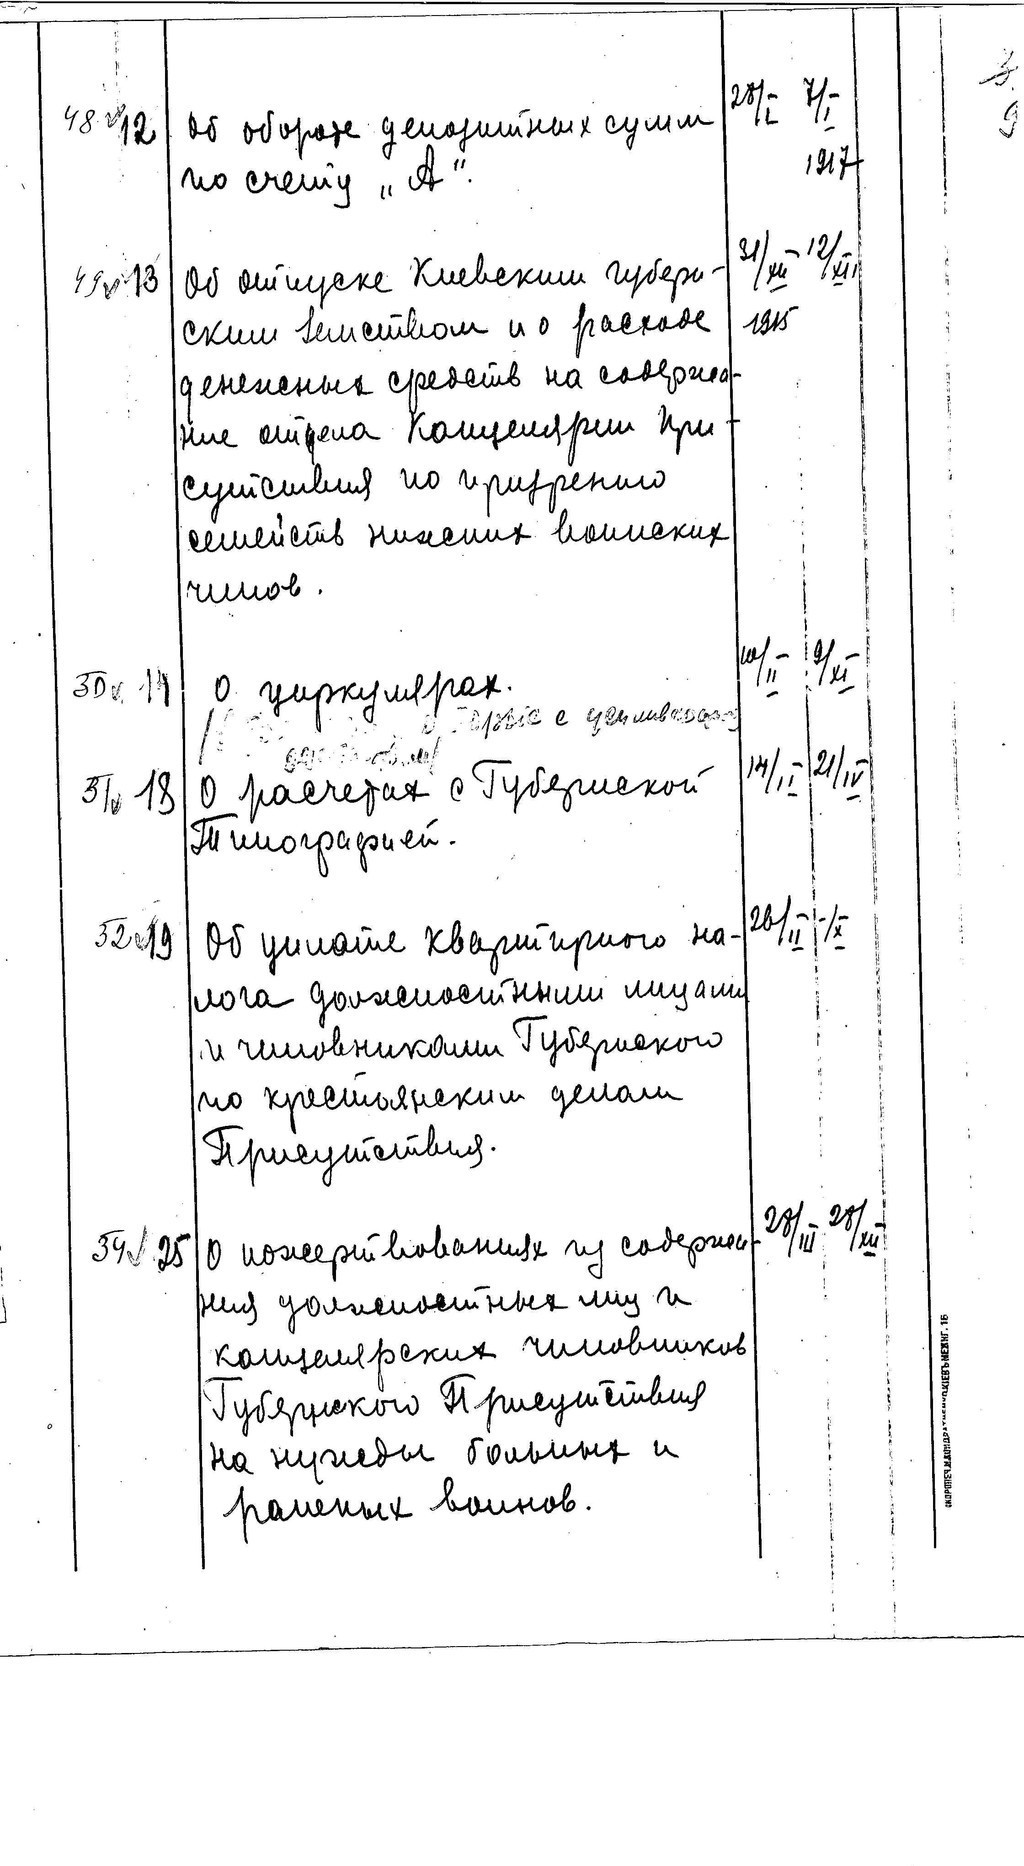 48 12 Об обороте депозитных сумм 28/I 7/I
по счету „А“. 1917
49 13 Об отпуске Киевским губерн- 31/XII 12/XII
ским земством и о расходе 1915
денежных средств на содержа-
ние отдела Канцелярии При-
сутствия по призрению
семейств нижних воинских
чинов.
50 14 О циркулярах. 10/II 9/XI
с
51 18 О расчетах с Губернской 14/II 21/IV
Типографией.
52 19 Об уплате квартирного на- 26/II -/X
лога должностными лицами
и чиновниками Губернского
по крестьянским делам
Присутствия.
54 25 О пожертвованиях из содержа- 28/III 28/XII
ния должностных лиц и
канцелярских чиновников
Губернского Присутствия
на нужды больных и
раненых воинов.